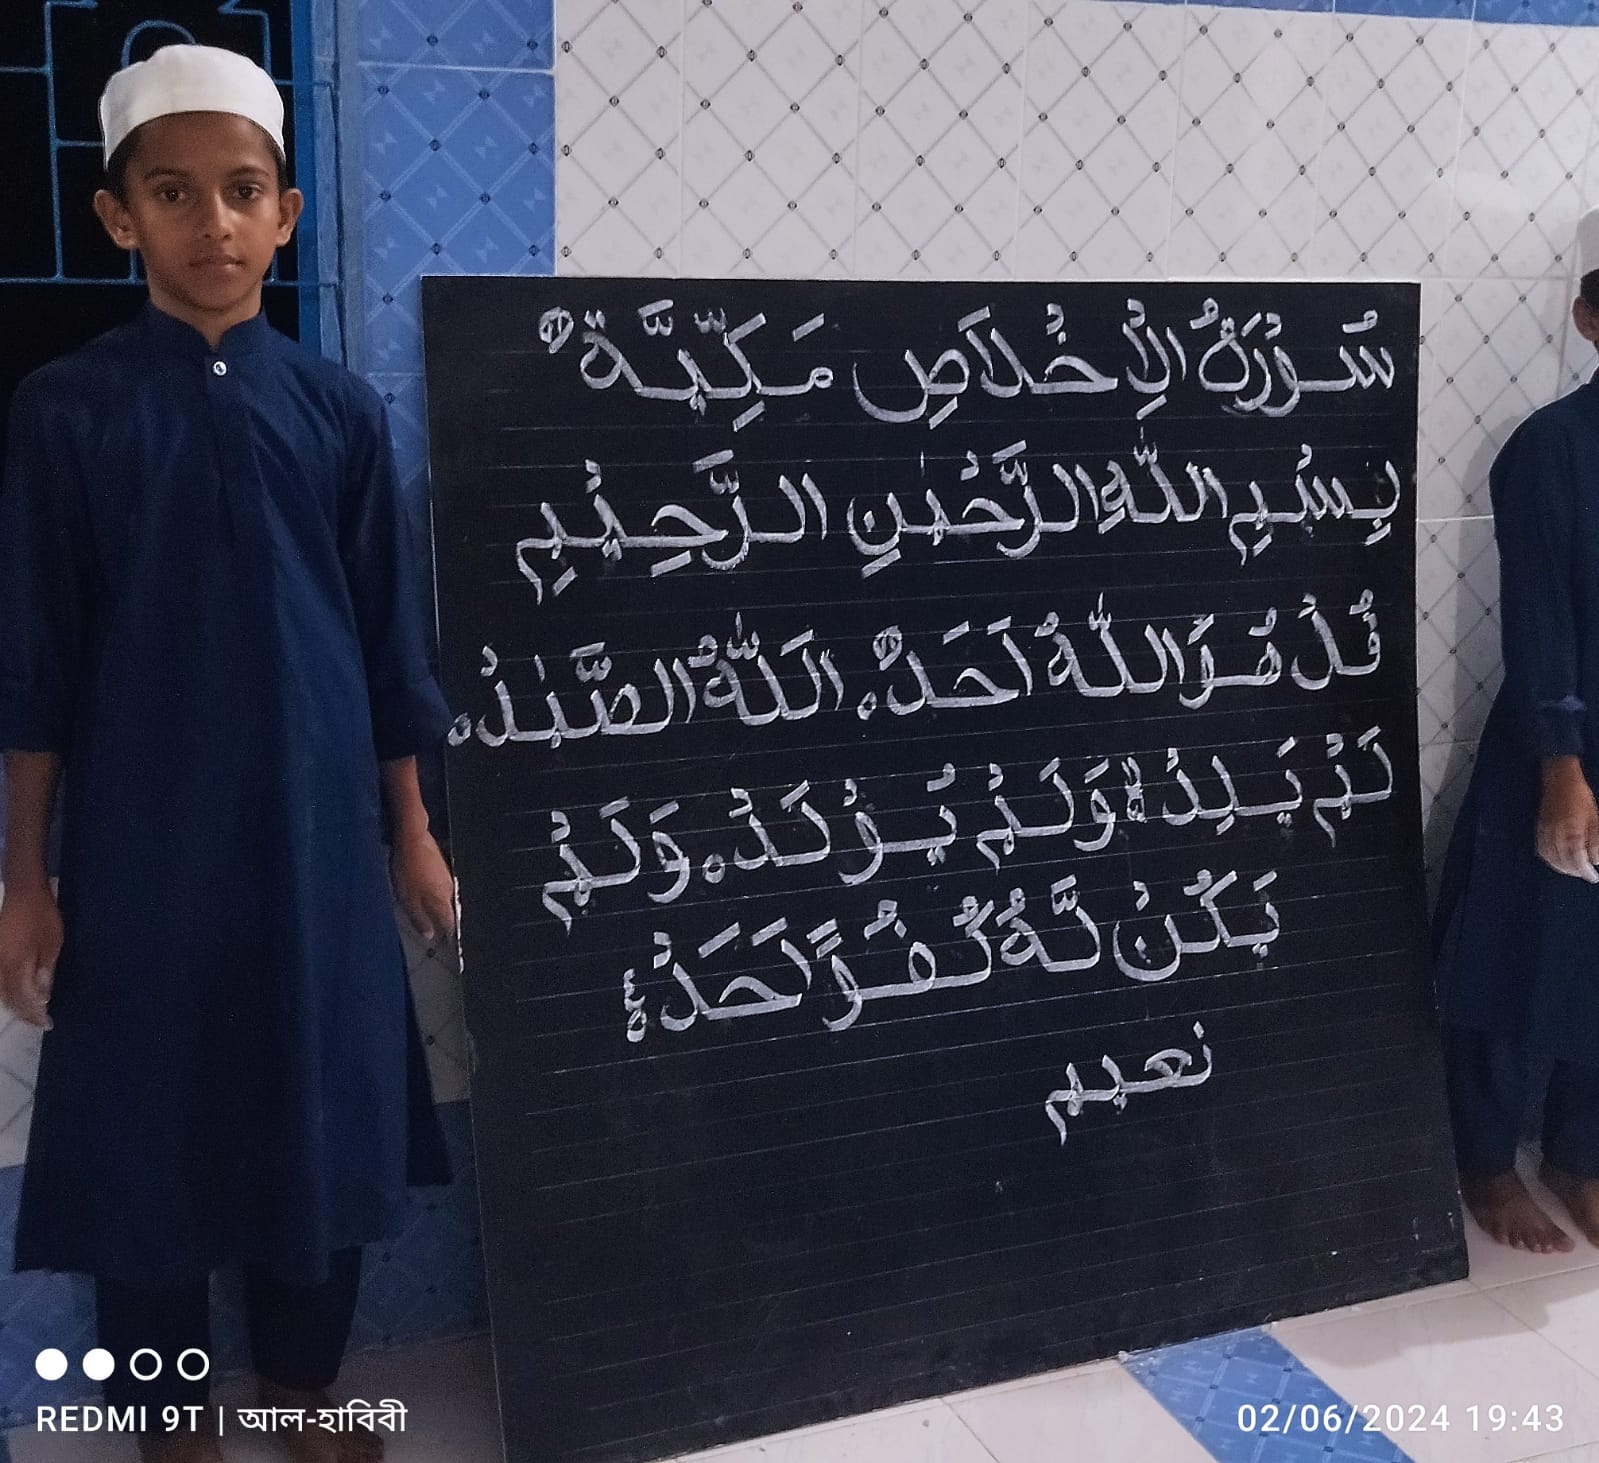 سُوْرَةُ الْاِخْلَاصِ مَكِّيَّةٌ
بِسْمِ اللّٰهِ الرَّحْمٰنِ الرَّحِيْمِ
قُلْ هُوَ اللّٰهُ اَحَدٌ ۝ اَللّٰهُ الصَّمَدْ ۝
لَمْ يَلِدْ ۙ وَلَمْ يُوْلَدْ ۝ وَلَمْ
يَكُنْ لَّهٗ كُفُوًا اَحَدْ
نعيم
REDMI 9T | আল-হাবিবী
02/06/2024 19:43